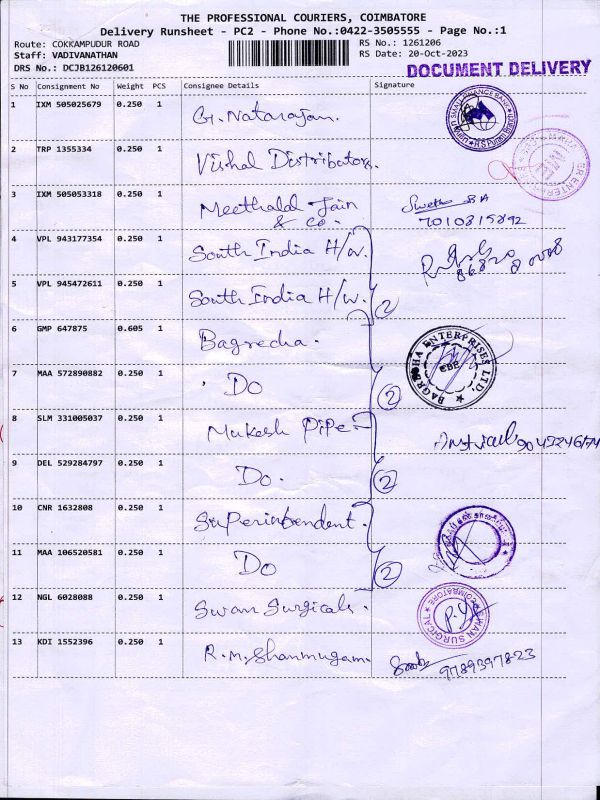 THE PROFESSIONAL COURIERS, COIMBATORE
Delivery Runsheet - PC2 - Phone No.:0422-3505555 - Page No.:1
Route: COKKAMPUDUR ROAD
Staff: VADIVANATHAN
DRS No.: DCJB126120601
RS No.: 1261206
RS Date: 20-Oct-2023
DOCUMENT DELIVERY
S No Consignment No Weight PCS Consignee Details Signature
1 IXM 505025679 0.250 1 G. Natarajan.
2 TRP 1355334 0.250 1 Vishal Distributors.
3 IXM 505053318 0.250 1 Meethalal Jain & Co. Swetha 7010815892
4 VPL 943177354 0.250 1 South India H/w.
5 VPL 945472611 0.250 1 South India H/w. 2
6 GMP 647875 0.605 1 Bagrecha. BAGRECHA ENTERPRISES LTD.
7 MAA 572890882 0.250 1 Do 2
8 SLM 331005037 0.250 1 Mukesh Pipe
9 DEL 529284797 0.250 1 Do. 2
10 CNR 1632808 0.250 1 Superintendent.
11 MAA 106520581 0.250 1 Do 2
12 NGL 6028088 0.250 1 Swan Surgicals. SWAN SURGICAL COIMBATORE
13 KDI 1552396 0.250 1 R.M. Shanmugam. 9789397823